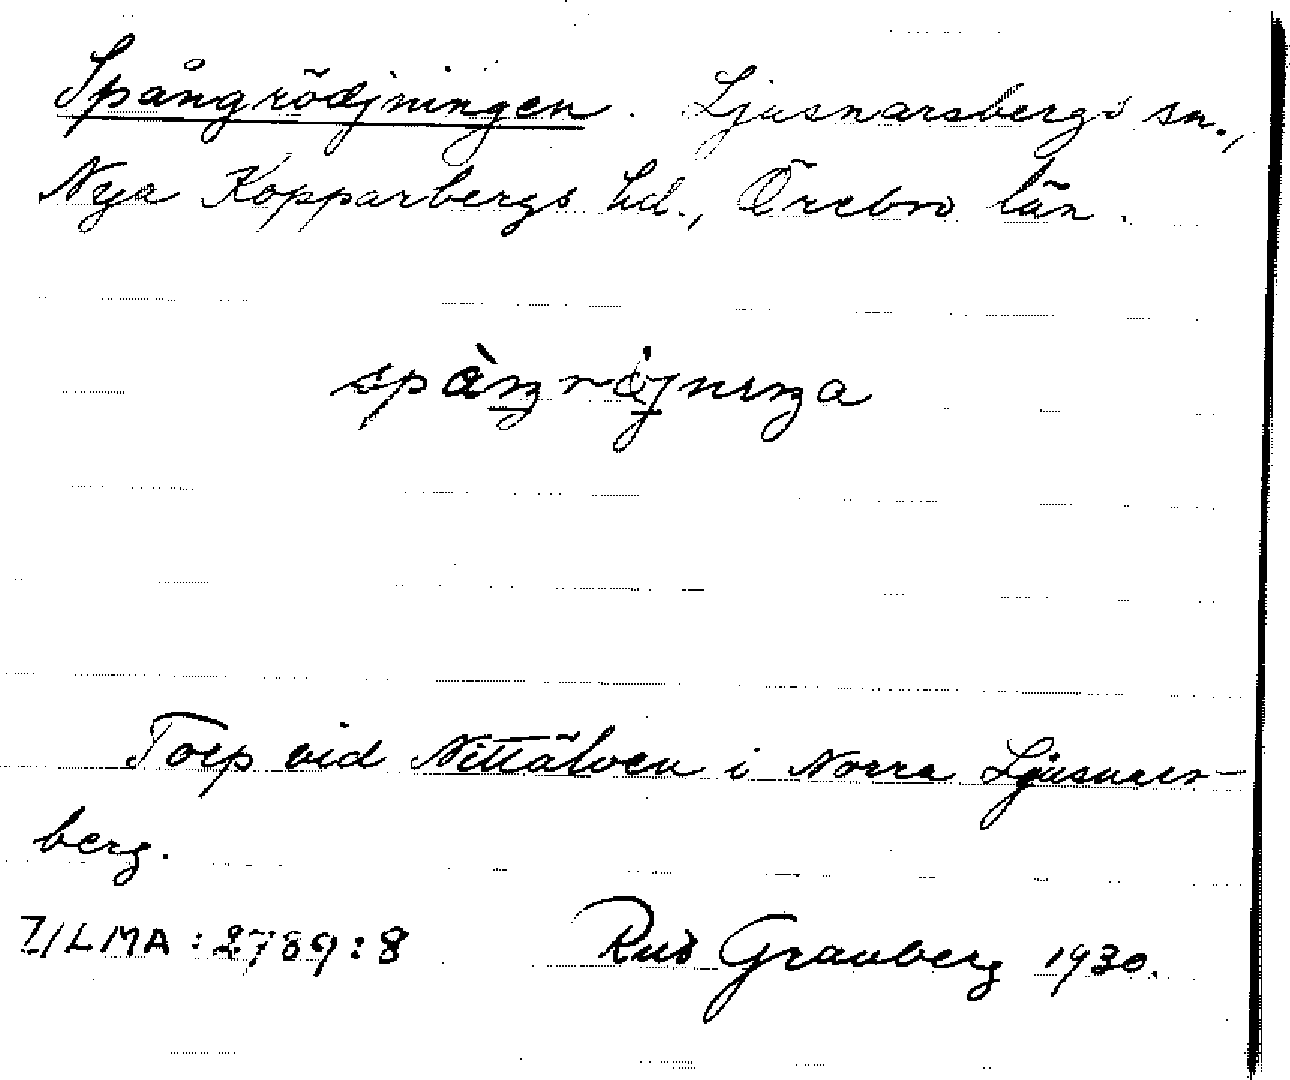 Spångrödjningen. Ljusnarsbergs sn.,
Nya Kopparbergs hd., Örebro län.
Torp vid Nittälven i Norra Ljusnars-
berg.
: 2789 : 8 Granberg 1930.